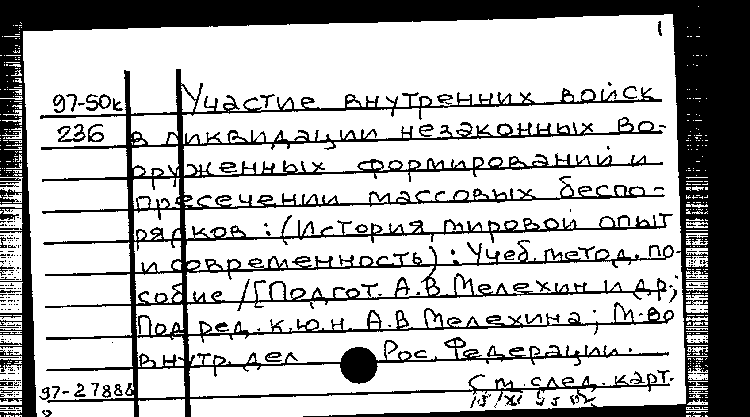 1
97-50к Участие внутренних войск
236 в ликвидации незаконных во-
оруженных формирований и
пресечении массовых беспо-
рядков : (История, мировой опыт
и современность) : Учеб. метод. по-
собие / [Подгот. А.В Мелехин и др;
Под ред. к.ю.н. А.В Мелехина; М-во
внутр. дел Рос. Федерации.
См. след. карт.
97-27888